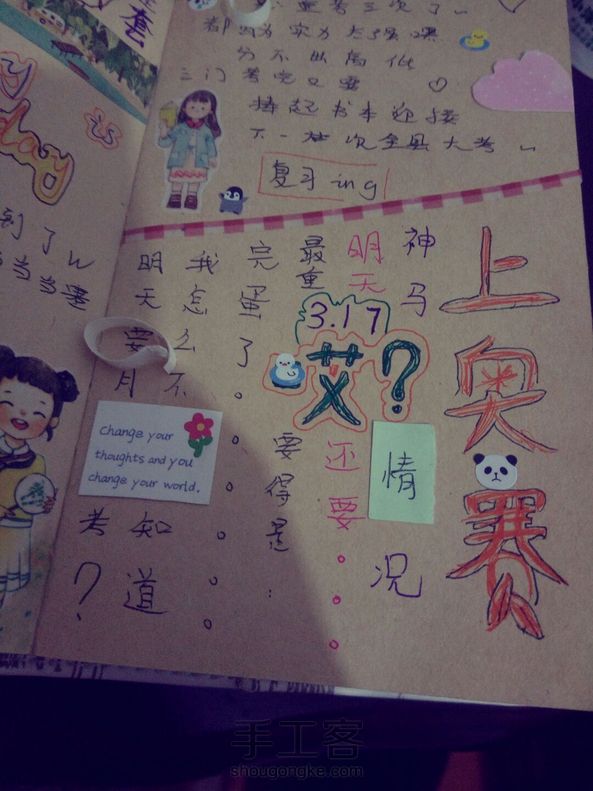 套
day
到了
考三次了~
分不出高低
三门考完又要
捧起书本迎接
下一次全县大考~
复习ing
上奥赛
神马情况
？
明天还要。。。
3.17
艾
最重要得是：
完蛋了。。。。。。
我怎么不知道
明天要月考？
change your
thoughts and you
change your world.
手工客
shougongke.com